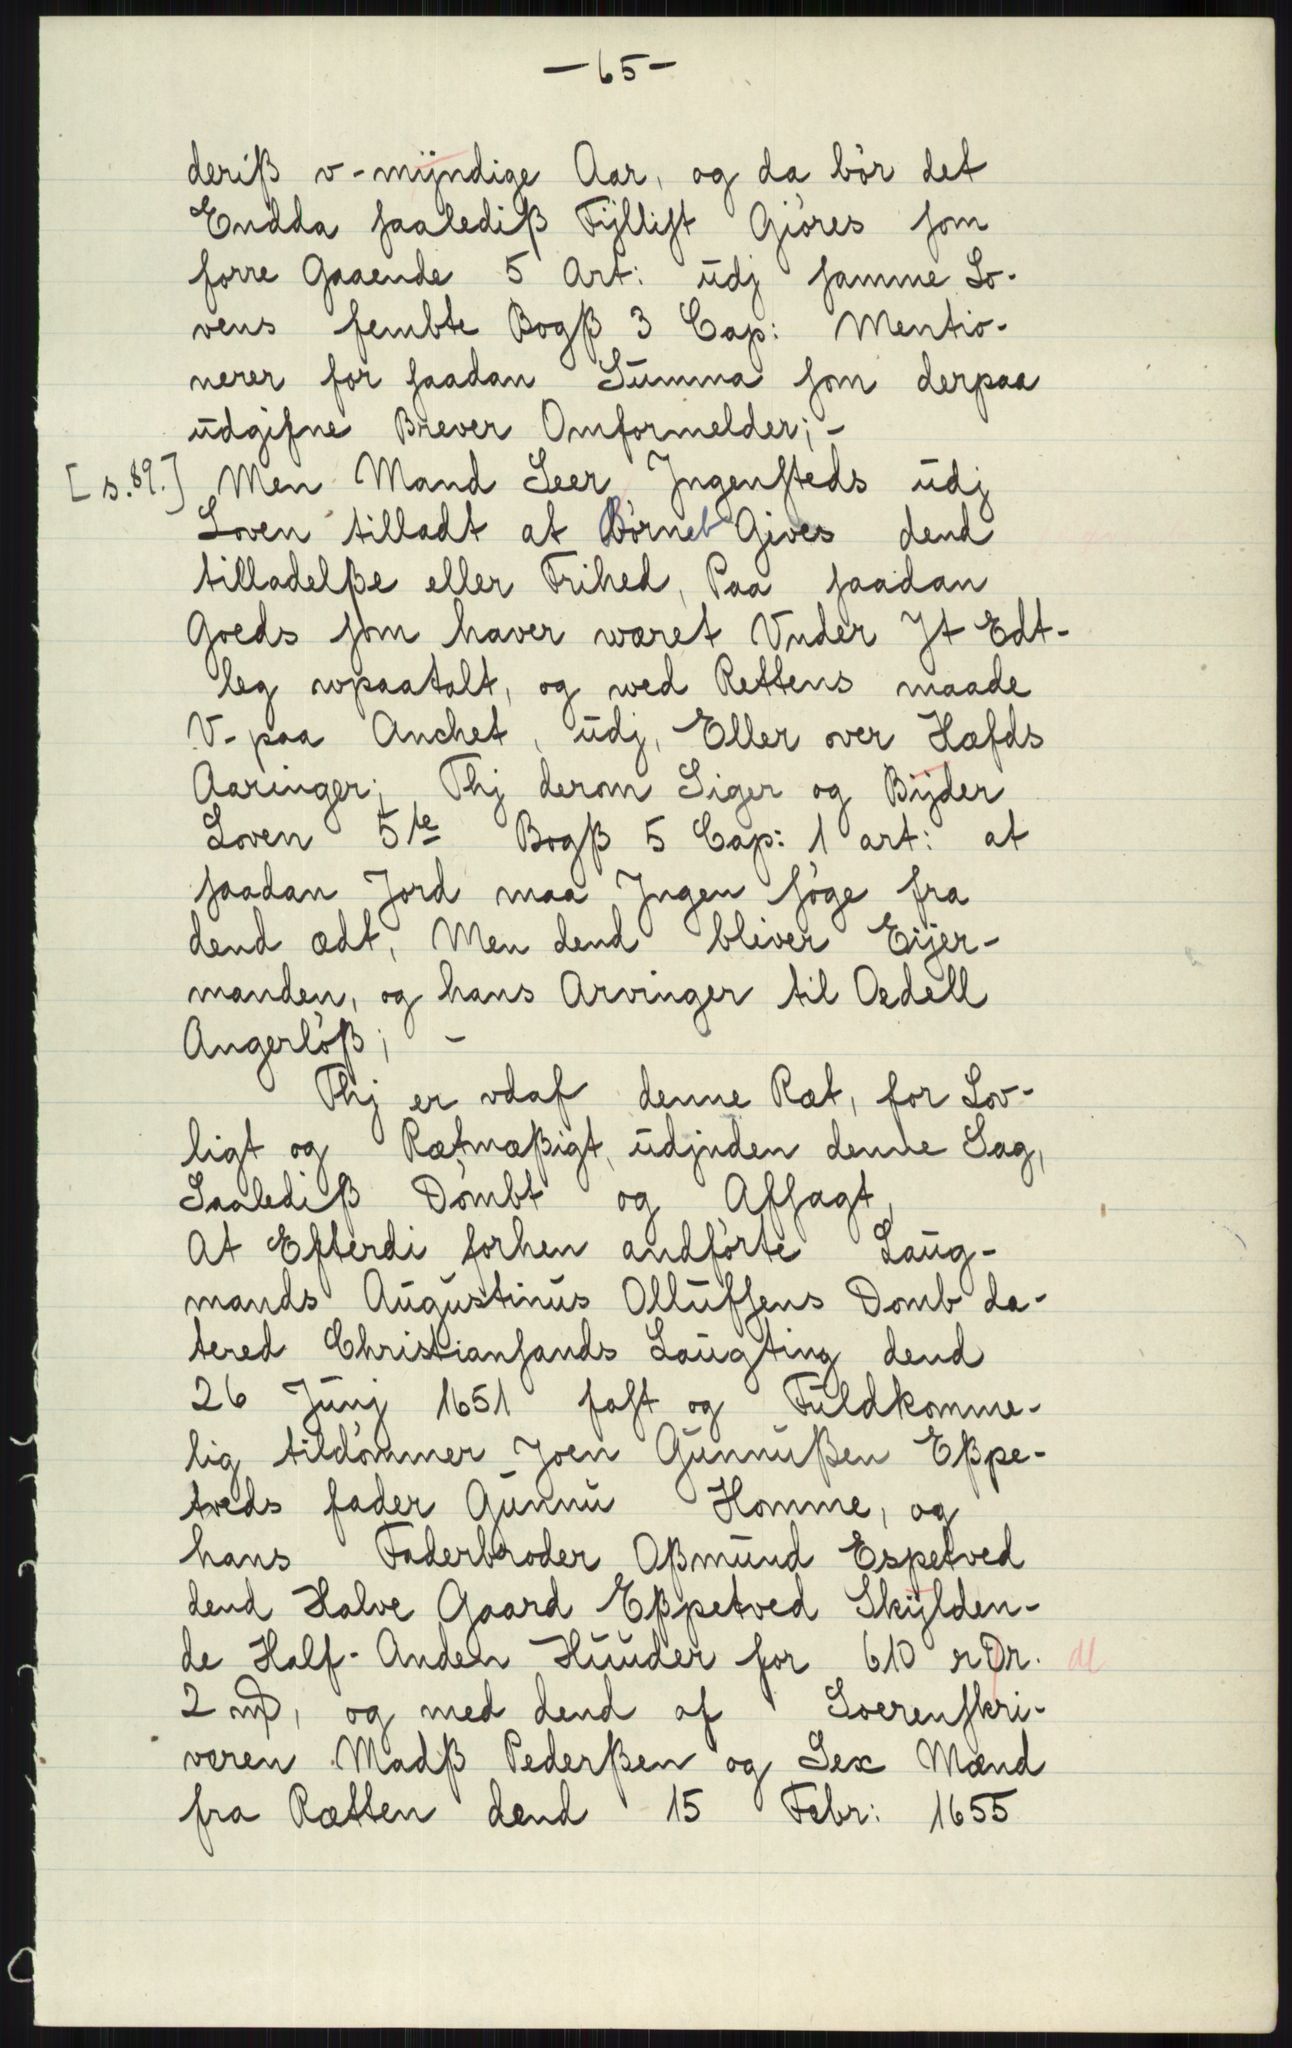 -65-
deriß v-mÿndige Aar, og da bör det
Endda saalediß Fÿllist Giöres som
forre Gaaende 5 Art: udj samme Lo-
vens fembte Bogß 3 Cap: Mentio-
nerer for saadan Summa som derpaa
udgifne Brever Omformelder; -
[s.89.] Men Mand Seer Jngensteds udj
Loven tilladt at Börnet Gives dend
tilladelße eller Frihed, Paa saadan
Goeds som haver wæret Vnder Jt Edt-
leg wpaatalt, og wed Rettens maade
V-paa Anchet, udj, Eller over Hæfds
Aaringer; Thj derom Siger og Bÿder
Loven 5te Bogß 5 Cap: 1 art: at
saadan Jord maa Jngen söge fra
dend ædt, Men dend bliver Eijer-
manden, og hans Arvinger til Oedell
Angerlöß; -
Thj er vdaf denne Ræt, for Lov-
ligt og Rætmæßigt, udjnden denne Sag,
Saalediß Dömbt og Afsagt,
At Efterdi forhen andförte Laug-
mands Augustinus Olluffsens Domb da-
tered Christiansands Laugting dend
26 Junj 1651 fast og Fuldkomme-
lig tildömmer Joen Gunnußen Eßpe-
tveds fader Gunnu Homme, og
hans Faderbroder Aßmund Espetved
dend Halve Gaard Eßpetved Skÿlden-
de Half-Anden Huuder for 610 rDr. dl
2 mþ, og med dend af Soerenskri-
veren Madß Pederßen og Sex Mænd
fra Rætten dend 15 Febr: 1655